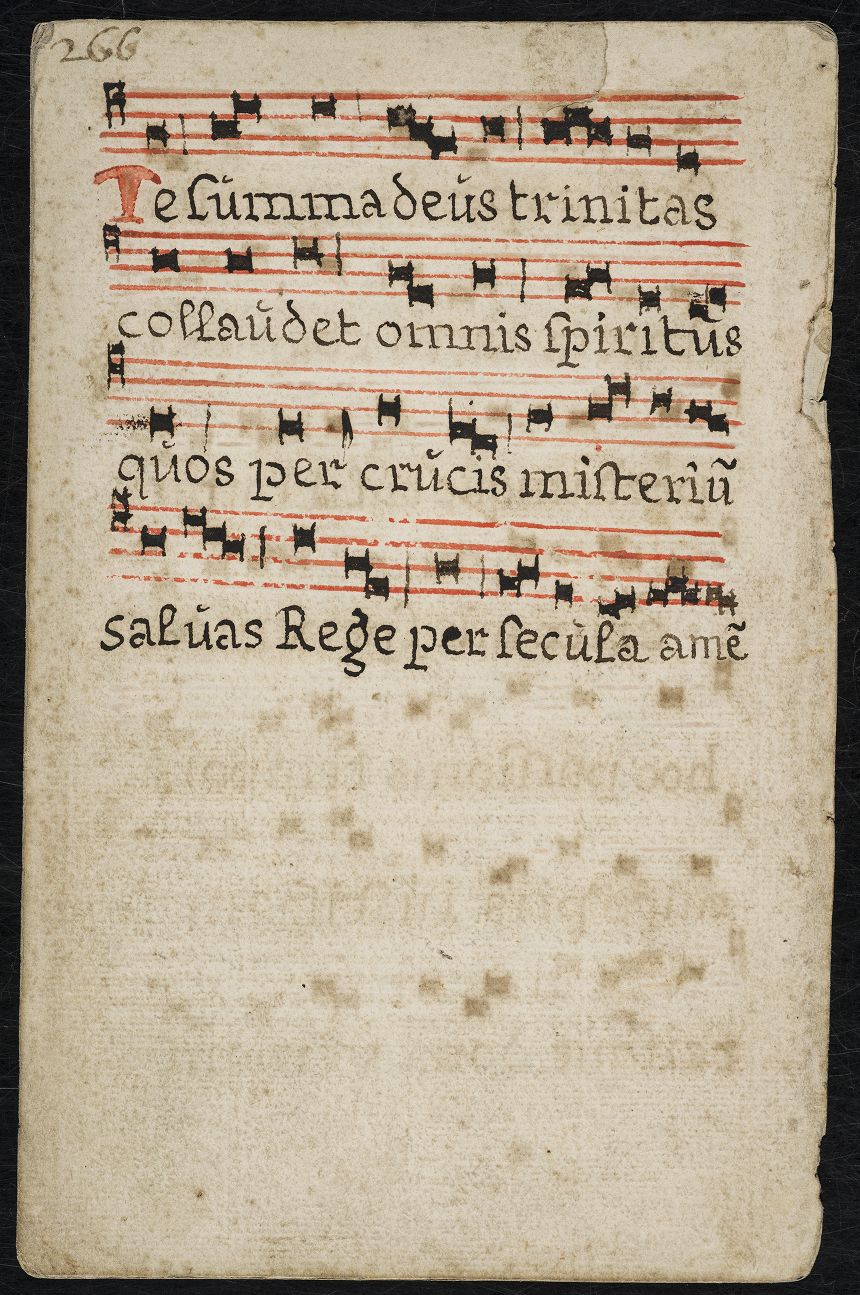 266
Te ſũmma deũs trinitas
collaũdet omnis ſpiritũs
qũos per crũcis miſteriũ
salũas Rege per ſecũla amẽ